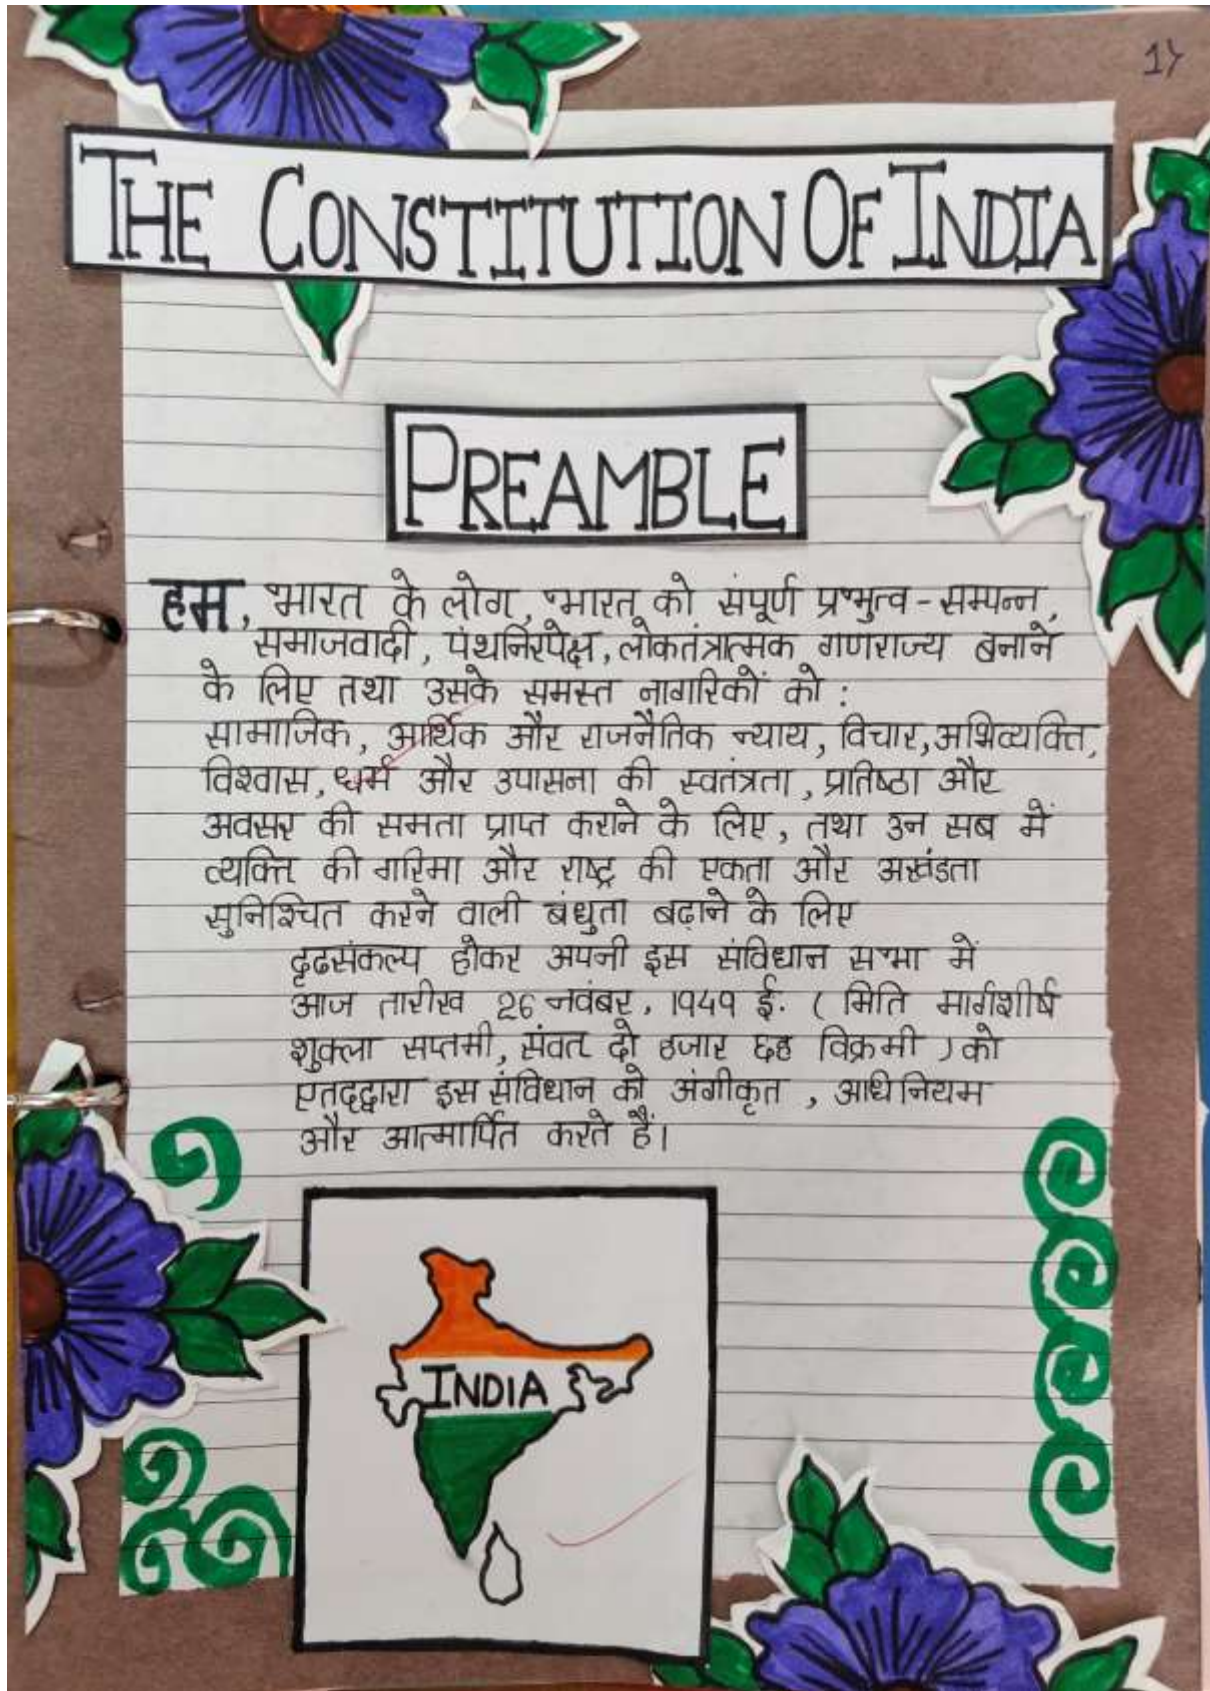 17
THE CONSTITUTION OF INDIA
PREAMBLE
हम, भारत के लोग, भारत को संपूर्ण प्रभुत्व-सम्पन्न,
समाजवादी, पंथनिरपेक्ष, लोकतंत्रात्मक गणराज्य बनाने
के लिए तथा उसके समस्त नागरिकों को :
सामाजिक, आर्थिक और राजनैतिक न्याय, विचार, अभिव्यक्ति,
विश्वास, धर्म और उपासना की स्वतंत्रता, प्रतिष्ठा और
अवसर की समता प्राप्त कराने के लिए, तथा उन सब में
व्यक्ति की गरिमा और राष्ट्र की एकता और अखंडता
सुनिश्चित करने वाली बंधुता बढ़ाने के लिए
दृढसंकल्प होकर अपनी इस संविधान सभा में
आज तारीख 26 नवंबर, 1949 ई. ( मिति मार्गशीर्ष
शुक्ला सप्तमी, संवत दो हजार छह विक्रमी ) को
एतद्द्वारा इस संविधान को अंगीकृत , अधिनियम
और आत्मार्पित करते हैं।
INDIA